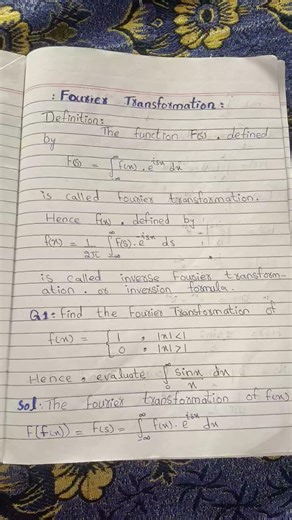 : Fourier Transformation :
Definition:
The function F(s), defined
by
F(s) = ∫_{-∞}^{∞} f(x) . e^{isx} dx
is called Fourier transformation.
Hence f(x), defined by
f(x) = 1/2π ∫_{-∞}^{∞} F(s) . e^{-isx} ds,
is called inverse Fourier transform-
ation. or inversion formula.
Q1: Find the Fourier Transformation of
f(x) = { 1 , |x| < 1
0 , |x| > 1
Hence, evaluate ∫_{0}^{∞} sinx/x dx
Sol: The Fourier transformation of f(x)
F(f(x)) = F(s) = ∫_{-∞}^{∞} f(x) . e^{isx} dx